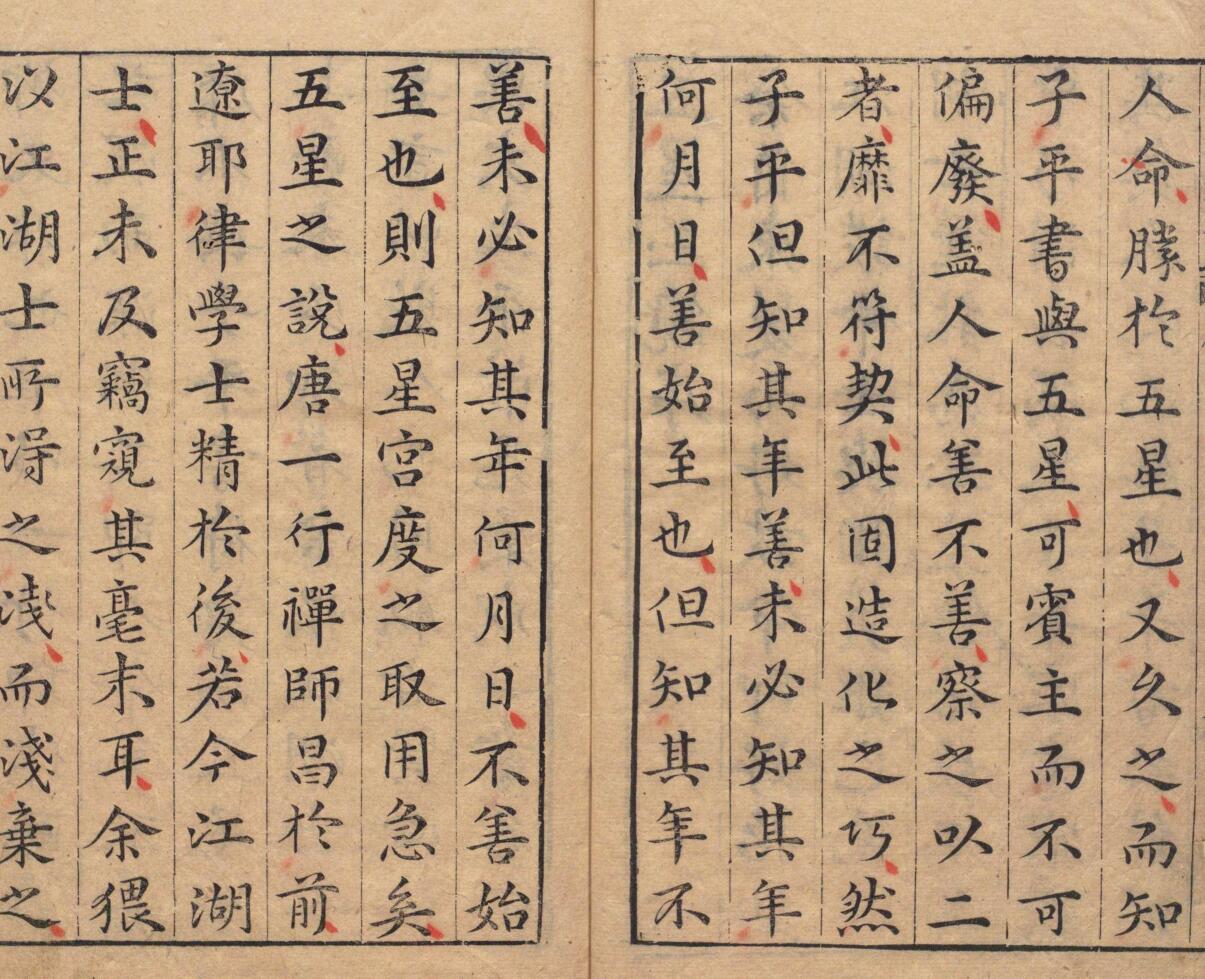 人命勝於五星也又久之而知
子平書與五星可賓主而不可
偏廢蓋人命善不善察之以二
者靡不符契此固造化之巧然
子平但知其年善未必知其年
何月日善始至也但知其年不
善未必知其年何月日不善始
至也則五星宮度之取用急矣
五星之說唐一行禪師昌於前
遼耶律學士精於後若今江湖
士正未及竊窺其毫末耳余猥
以江湖士所得之淺而淺棄之